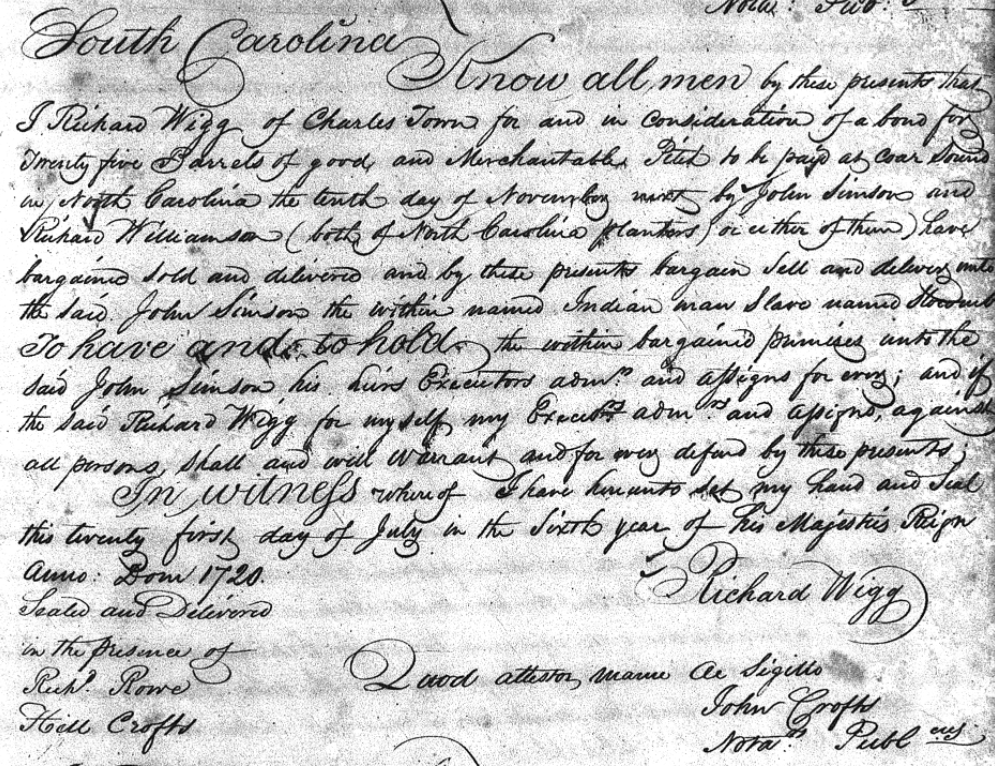 South Carolina
Know all men by these presents that
I Richard Wigg of Charles Town for and in consideration of a bond for
Twenty five Barrels of good and Merchantable Pitch to be payd at Coar Sound
in North Carolina the tenth day of November next by John Simson and
Richard Williamson (both of North Carolina planters or either of them) have
bargained Sold and delivered and by these presents bargain Sell and deliver unto
the said John Simson the within named Indian man Slave named
To have and to hold the within bargained premises unto the
said John Simson his heirs Executors adm.rs and assigns for ever; and if
the said Richard Wigg for myself my Execut.rs adm.rs and assigns, against
all persons shall and will warrant and for ever defend by these presents;
In witness whereof I have hereunto set my hand and Seal
this twenty first day of July in the Sixth year of his Majesties Reign
Anno: Dom 1720.
Richard Wigg
Sealed and Delivered
in the presence of
Rich.d Rowe
Hill Crofts
Quod attestor manu ac Sigillo
John Crofts
Nota.rs Publ cus